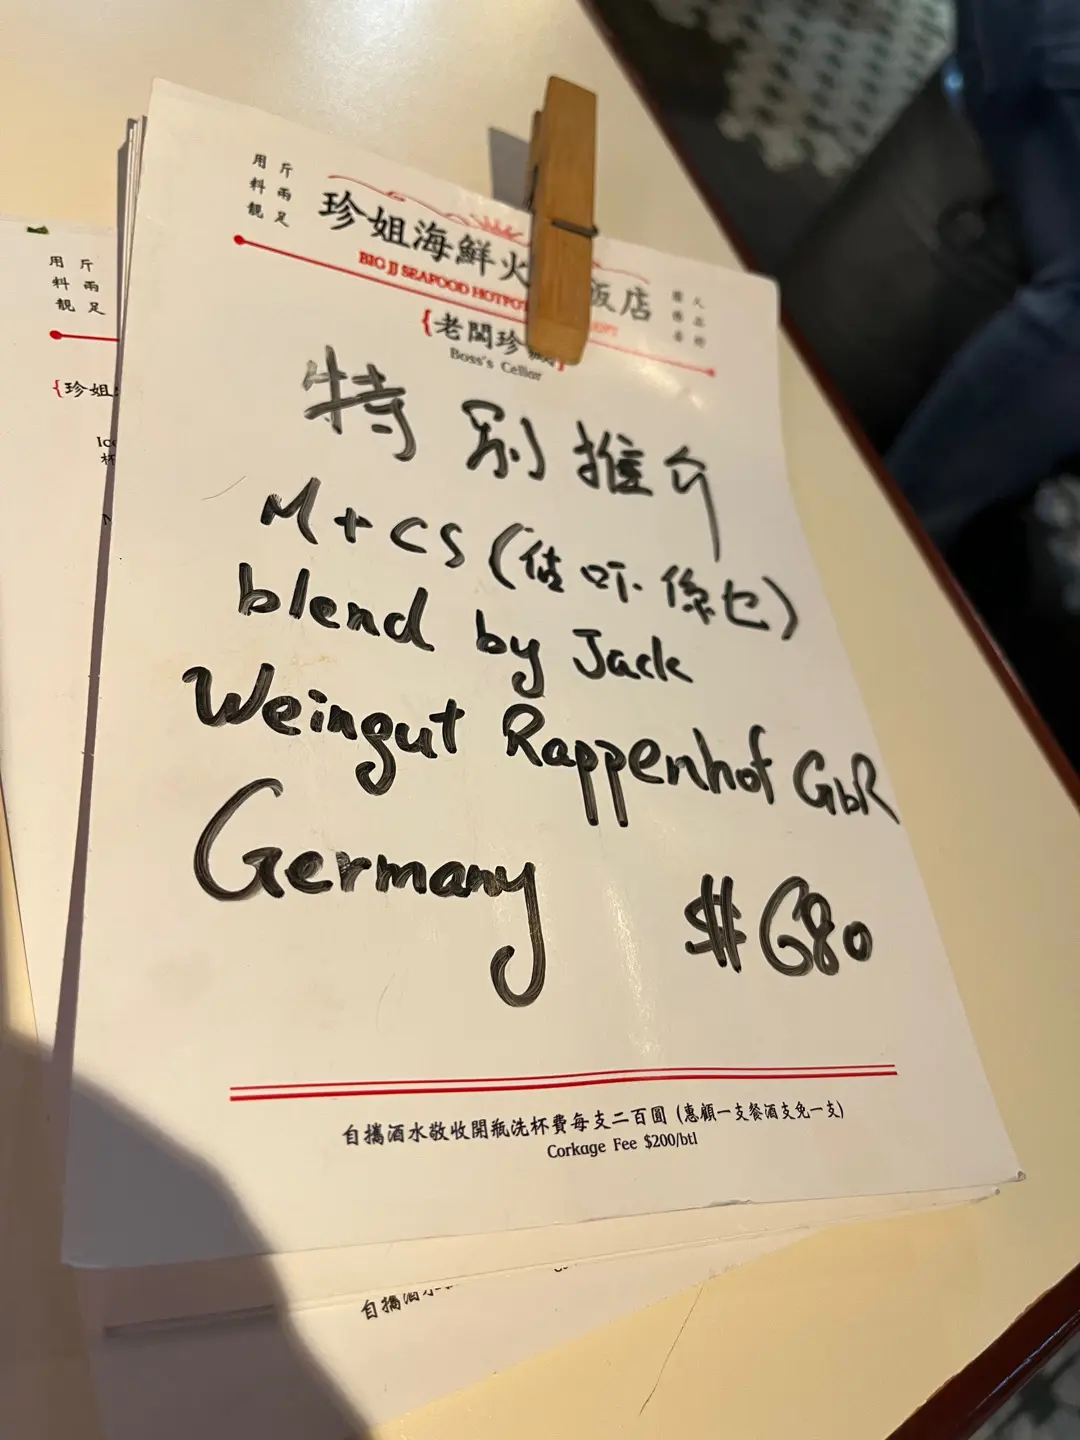 用料靚
斤兩足
珍姐海鮮火
飯店
BIG JJ SEAFOOD HOTPOT
{老闆珍藏}
Boss's Cellar
特別推介
M+CS (估吓係乜)
blend by Jack
Weingut Rappenhof GbR
Germany
$680
自攜酒水敬收開瓶洗杯費每支二百圓 (惠顧一支餐酒支免一支)
Corkage Fee $200/btl
用料靚
斤兩足
{珍姐
自攜酒水